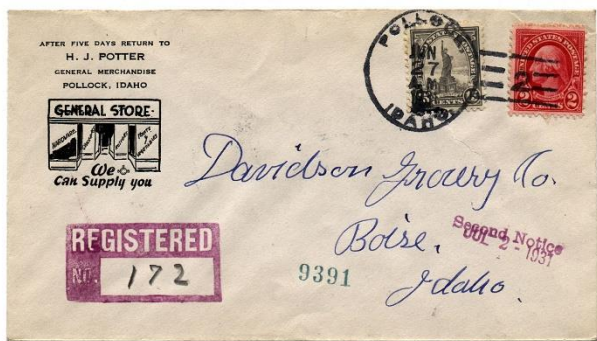 AFTER FIVE DAYS RETURN TO
H. J. POTTER
GENERAL MERCHANDISE
POLLOCK, IDAHO
GENERAL STORE
HARDWARE
We
Can Supply you
POLLOCK
JUN
7
IDAHO
CENTS
UNITED STATES POSTAGE
2 2
Davidson Grocery Co.
Boise,
Idaho.
Second Notice
JUL 2 - 1931
REGISTERED
NO. 172
9391